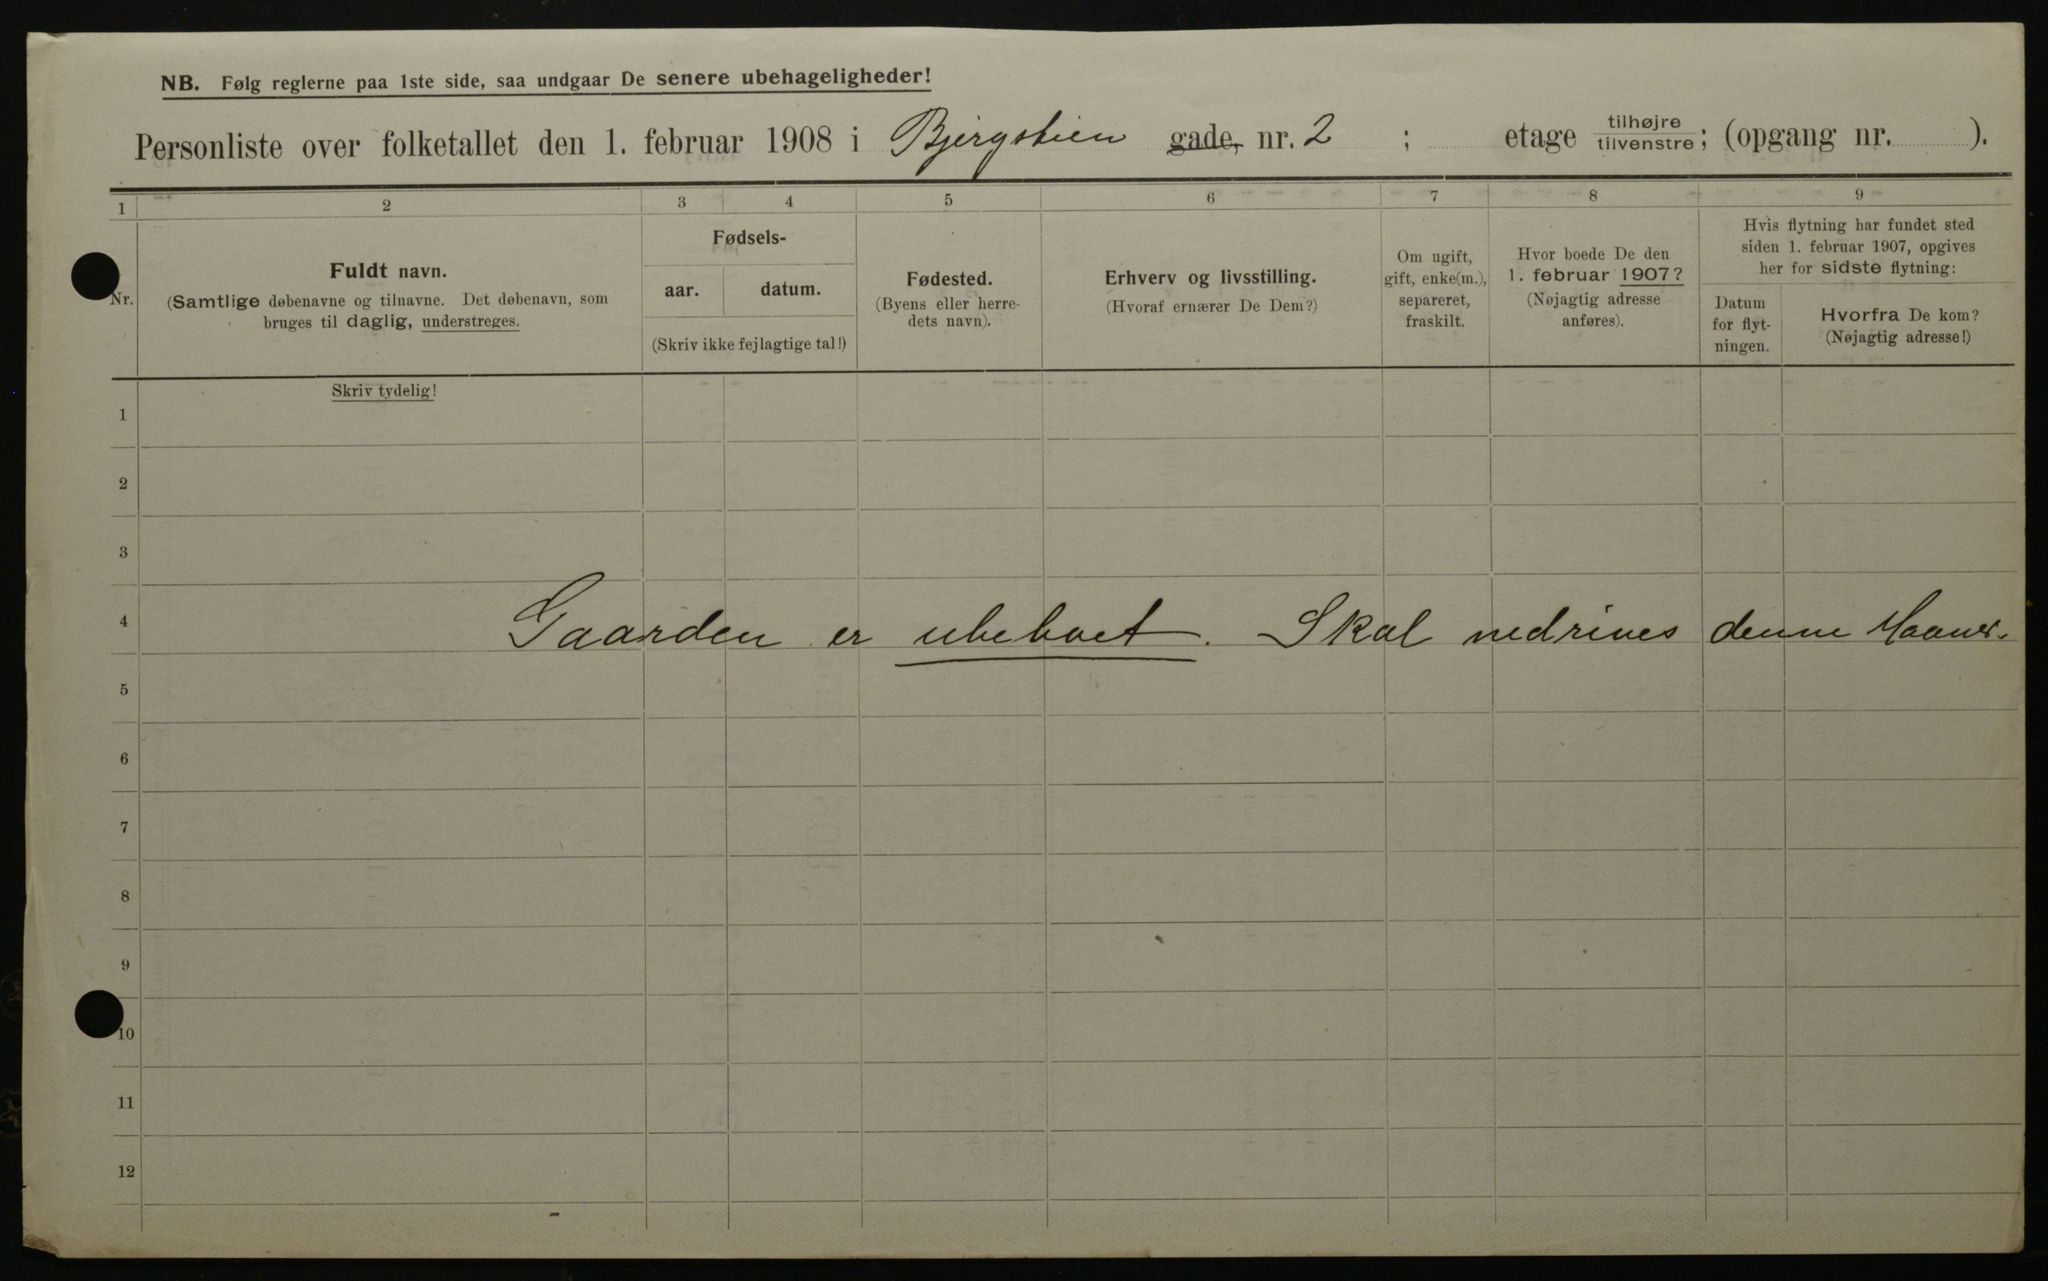 NB. Følg reglerne paa 1ste side, saa undgaar De senere ubehageligheder!
Personliste over folketallet den 1. februar 1908 i Bjergstien gade, nr. 2 ; etage tilhøjre tilvenstre; (opgang nr. ).
1 2 3 4 5 6 7 8 9
Nr.
Fuldt navn.
(Samtlige døbenavne og tilnavne. Det døbenavn, som
bruges til daglig, understreges.
Fødsels-
aar. datum.
(Skriv ikke fejlagtige tal!)
Fødested.
(Byens eller herre-
dets navn).
Erhverv og livsstilling.
(Hvoraf ernærer De Dem?)
Om ugift,
gift, enke(m.),
separeret,
fraskilt.
Hvor boede De den
1. februar 1907?
(Nøjagtig adresse
anføres).
Hvis flytning har fundet sted
siden 1. februar 1907, opgives
her for sidste flytning:
Datum
for flyt-
ningen.
Hvorfra De kom?
(Nøjagtig adresse!)
Skriv tydelig!
1
2
3
4 Gaarden er ubeboet. Skal nedrives denne
5
6
7
8
9
10
11
12